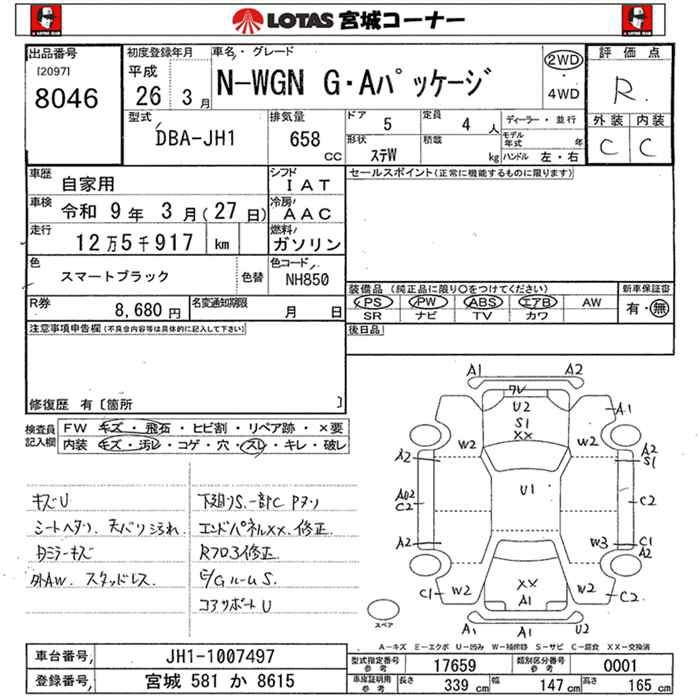 LOTAS 宮城コーナー
出品番号
[2097]
8046
初度登録年月
平成
26 3 月
車名・グレード
N-WGN G・Aパッケージ
2WD
・
4WD
評価点
R.
型式
DBA-JH1
排気量
658
CC
ドア 5
定員 4 人
形状
ステW
積載
kg
ディーラー・並行
モデル
年式 年
ハンドル 左・右
外装 内装
C C
車歴
自家用
シフト
IAT
車検
令和 9 年 3 月(27 日)
冷房
AAC
走行
12万5千917 km
燃料
ガソリン
色
スマートブラック
色替
色コード
NH850
R券
8,680 円
名変通知期限
月 日
セールスポイント(正常に機能するものに限ります)
装備品 (純正品に限り○をつけてください)
PS PW ABS エアB AW
SR ナビ TV カワ
新車保証書
有・無
後日品
注意事項申告欄(不具合内容等は具体的に記入して下さい)
修復歴 有〔箇所 〕
検査員
記入欄
FW キズ・飛石・ヒビ割・リペア跡・×要
内装 キズ・汚レ・コゲ・穴・スレ・キレ・破レ
キズU
シートヘタリ、天バリ汚れ.
Dミラーキズ
外AW. スタッドレス
下廻りS. 一部C Pヌリ
エンドパネルXX. 修正
Rフロ3修正
E/GルームS.
コアサポートU
A1 A2
ワレ
U2
S1
XX
A1
W2 W2
A2 A2
S1
U1
C2 C2
A2 W3 C1
A2
C1 W2 XX W2 C2
A1
A1 A1 U2
スペア
A-キズ E-エクボ U-凹み W-補修跡 S-サビ C-腐食 XX-交換済
車台番号 JH1-1007497
登録番号 宮城 581 か 8615
型式指定番号
参考
17659
類別区分番号
参考
0001
車庫証明用
参考
長さ 339 cm 幅 147 cm 高さ 165 cm